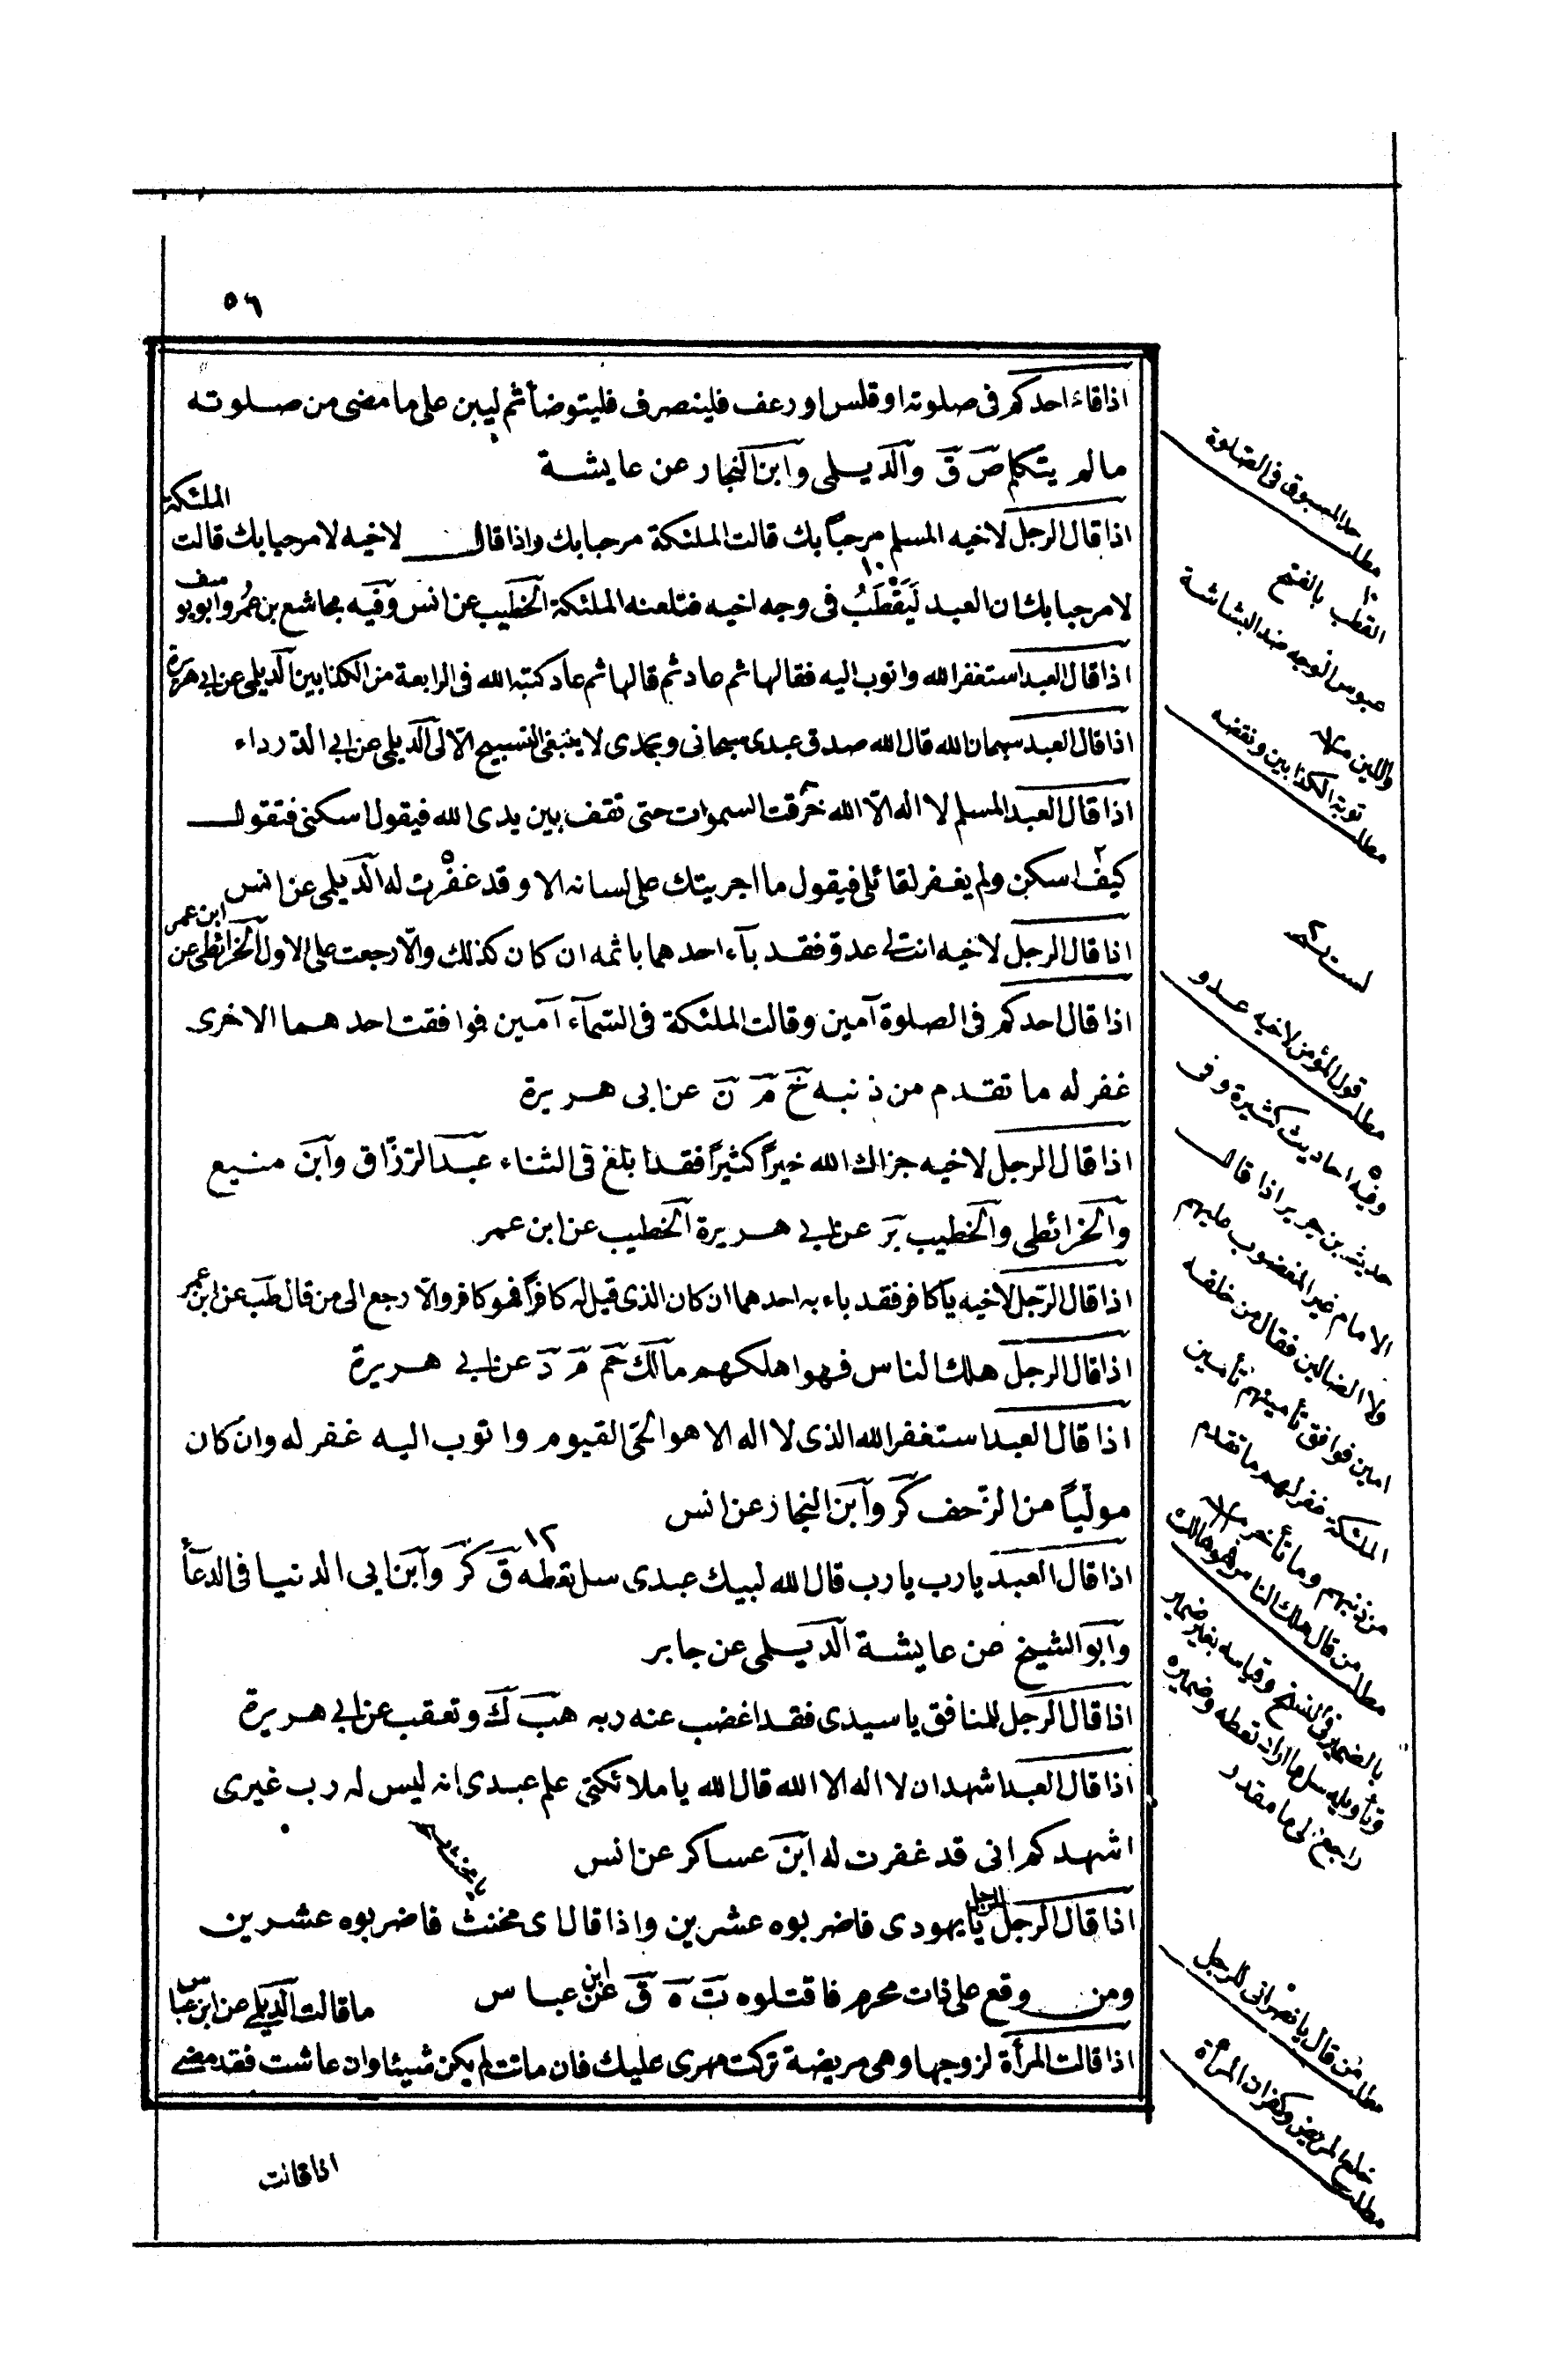 ٥٦
اذا قاء احدكم فى صلوته او قلس او رعف فلينصرف فليتوضأ ثم ليبن على ما مضى من صلوته
ما لم يتكلم ص ق والديلمى وابن النجار عن عايشة
اذا قال الرجل لاخيه المسلم مرحباً بك قالت الملئكة مرحبا بك واذا قال لاخيه لا مرحبا بك قالت الملئكة
لا مرحبا بك ان العبد لَيَقْطَبُ فى وجه اخيه فتلعنه الملئكة الخطيب عن انس وفيه مجاشع بن عمرو ابو يوسف
اذا قال العبد استغفر الله واتوب اليه فقالها ثم عاد ثم قالها ثم عاد كتبه الله فى الرابعة من الكذابين الديلمى عن ابى هريرة
اذا قال العبد سبحان الله قال الله صدق عبدى سبحانى وبحمدى لا ينبغى التسبيح الّا لى الديلمى عن ابى الدرداء
اذا قال العبد المسلم لا اله الّا الله خرقت السموات حتى تقف بين يدى الله فيقول اسكنى فتقول
كيف اسكن ولم يغفر لقائلى فيقول ما اجريتك على لسانه الا وقد غفرت له الديلمى عن انس
اذا قال الرجل لاخيه انت لى عدو فقد بآء احدهما باثمه ان كان كذلك والّا رجعت على الاول الخرائطى عن ابن عمر
اذا قال احدكم فى الصلوة آمين وقالت الملئكة فى السمآء آمين فوافقت احدهما الاخرى
غفر له ما تقدم من ذنبه خ م ن عن ابى هريرة
اذا قال الرجل لاخيه جزاك الله خيراً كثيراً فقد ابلغ فى الثناء عبد الرزّاق وابن منيع
والخرائطى والخطيب بر عن ابى هريرة الخطيب عن ابن عمر
اذا قال الرّجل لاخيه يا كافر فقد باء به احدهما ان كان الذى قيل له كافراً فهو كافر والّا رجع الى من قال طب عن ابن عمر
اذا قال الرجل هلك الناس فهو اهلكهم مالك حم م د عن ابى هريرة
اذا قال العبد استغفر الله الذى لا اله الا هو الحىّ القيوم واتوب اليه غفر له وان كان
مولّياً من الزّحف كر وابن النجار عن انس
اذا قال العبد يا رب يا رب قال الله لبيك عبدى سل تعطه ١٢ ق كر وابن ابى الدنيا فى الدعآء
وابو الشيخ عن عايشة الديلمى عن جابر
اذا قال الرجل للمنافق يا سيدى فقد اغضب عنه ربه هب ك وتعقب عن ابى هريرة
اذا قال العبد اشهد ان لا اله الا الله قال الله يا ملائكتى علم عبدى انه ليس له رب غيرى
اشهدكم انى قد غفرت له ابن عساكر عن انس
اذا قال الرجل للرجل يا يهودى فاضربوه عشرين واذا قال اى مخنث فاضربوه عشرين
ومن وقع على ذات محرم فاقتلوه ت ه ق عن ابن عباس
ما قالت الديلمى عن ابن عباس
اذا قالت المرأة لزوجها وهى مريضة تركت مهرى عليك فان ماتت لم يكن شيئا وان عاشت فقد مضى
اذا قالت
مطلب حد المسبوق فى الصلوة
١٠ القطب بالفتح
عبوس الوجه ضد البشاشة
واللين منه
مطلب توبة الكذابين ونقضه
لست نسخه
مطلب قول المؤمن لاخيه عدو
وفيه احاديث كثيرة وفى
حديث بن جرير اذا قال
الامام غير المغضوب عليهم
ولا الضالين فقال من خلفه
امين فوافق تأمينهم تأمين
الملئكة غفر لهم ما تقدم
من ذنبهم وما تأخر منه
مطلب من قال هلك الناس فهو هالك
بالضمير فى النسخ وقياسه بغير ضمير
وتأويله سل ما اراد تعطه وضميره
راجع الى ما مقدر
مطلب من قال يا نصرانى للرجل
مطلب خلع المريض وكفران المرأة